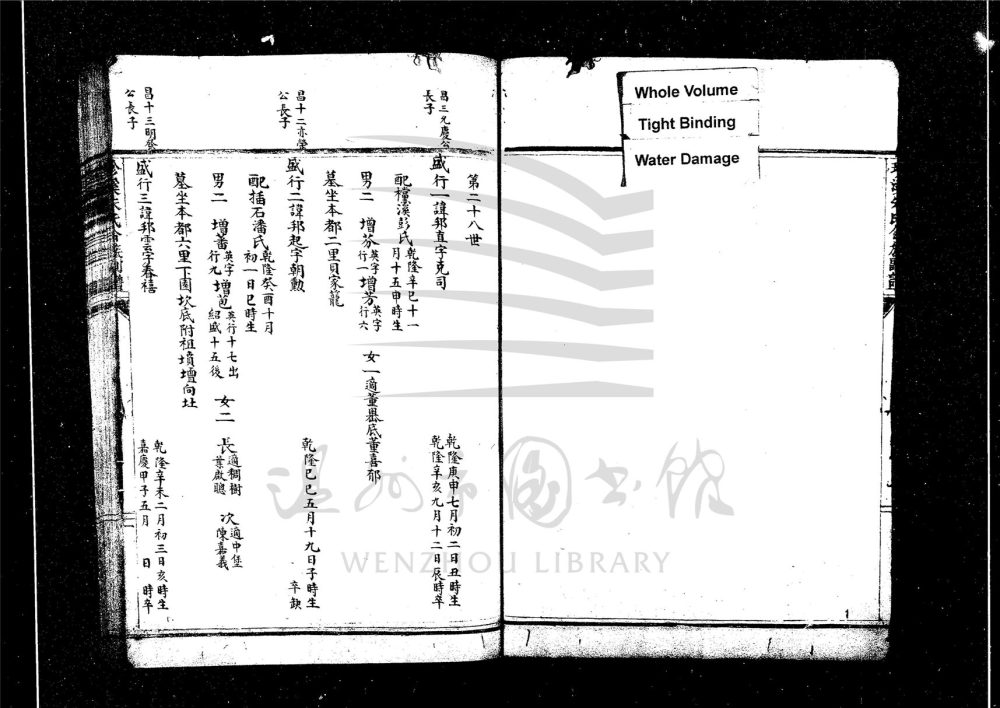 Whole Volume
Tight Binding
Water Damage
第二十八世
昌三元慶公
長子
盛行一諱邦直字克司
乾隆庚申七月初二日丑時生
乾隆辛亥九月十二日辰時卒
配檀溪彭氏
乾隆辛巳十一
月十五申時生
男二 增芬 英字行一 增芳 英字行六 女一適董嶴底董喜郁
墓坐本都二里貝家籠
昌十二亦榮
公長子
盛行二諱邦起字朝勲
乾隆己巳五月十九日子時生
卒缺
配插石潘氏
乾隆癸酉十月
初一日巳時生
男二 增蕃 英字行九 增苞 英行十七出紹盛十五後 女二 長適稠樹葉啟聰 次適中垟陳嘉義
墓坐本都六里下園坎底附祖墳壇向址
昌十三明發
公長子
盛行三諱邦雲字春禧
乾隆辛未二月初三日亥時生
嘉慶甲子五月 日 時卒
温州市圖書館
WENZHOU LIBRARY
1